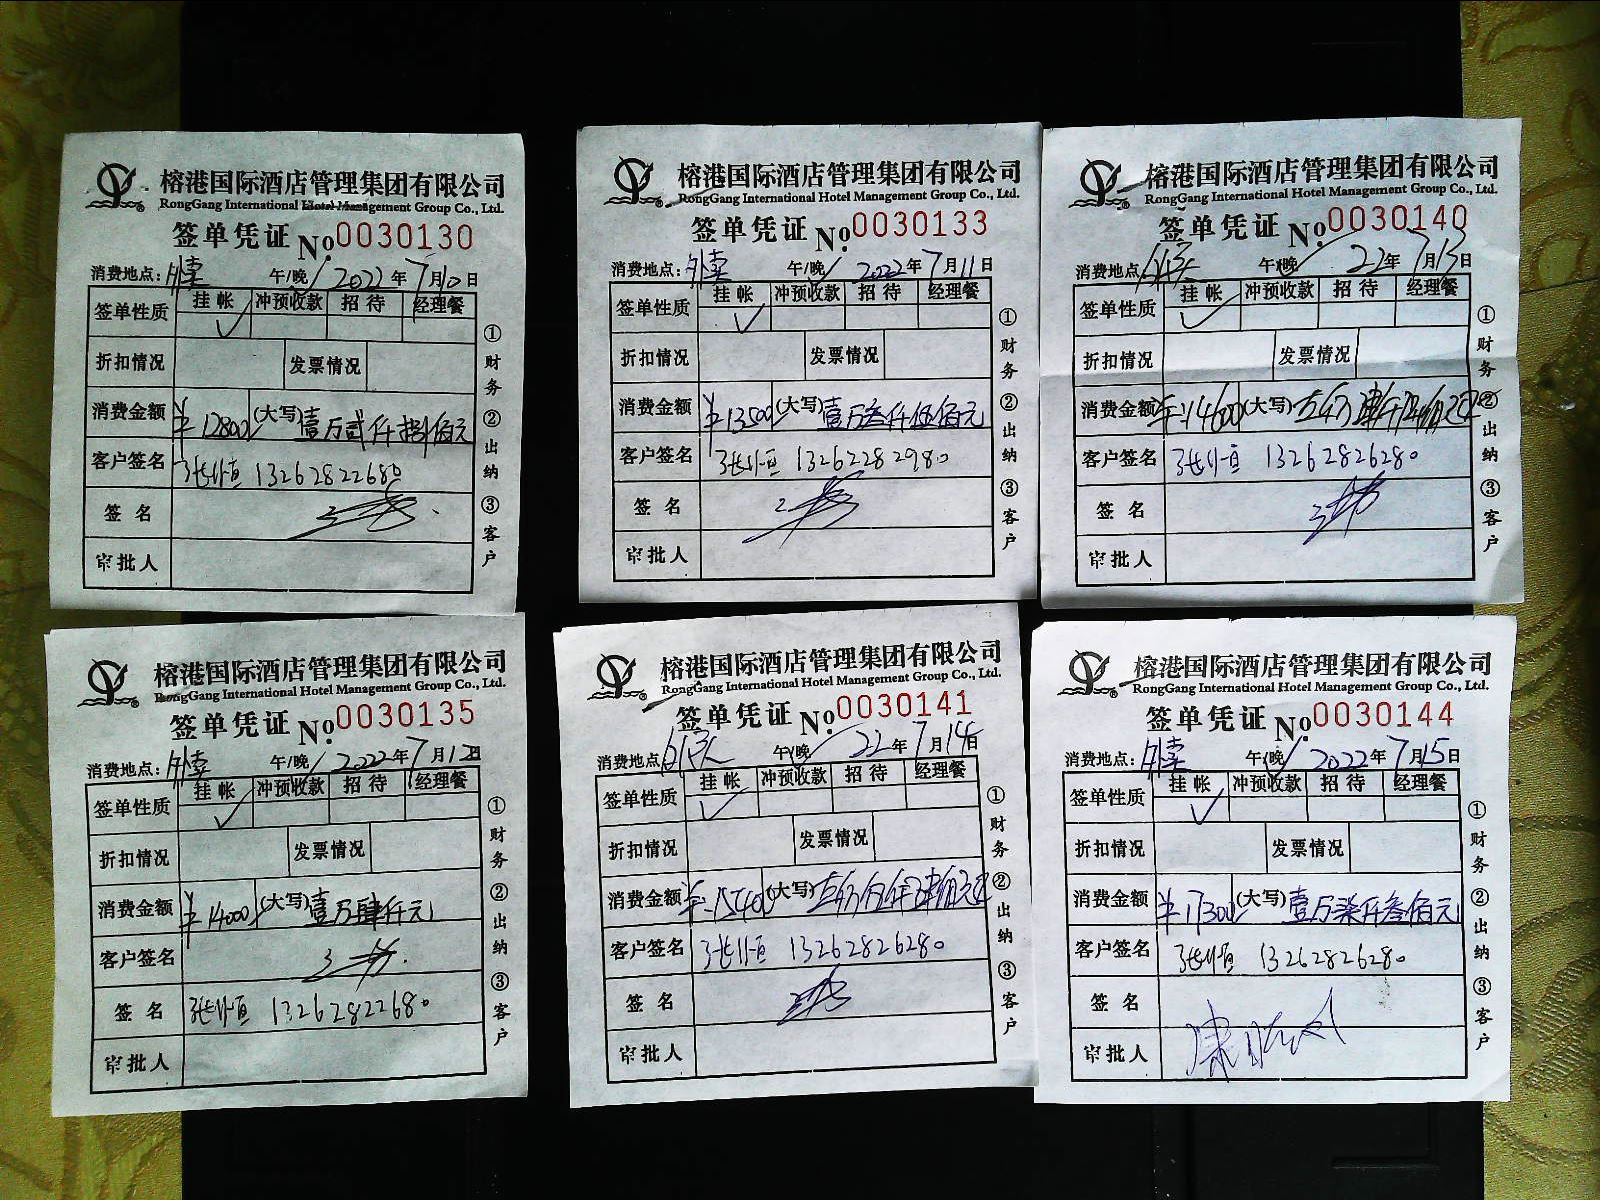 榕港国际酒店管理集团有限公司
RongGang International Hotel Management Group Co., Ltd.
签单凭证 No. 0030130
消费地点: 外卖 午/晚 2022年7月10日
签单性质 挂帐 冲预收款 招待 经理餐
✓
折扣情况 发票情况
消费金额 ¥12800 (大写) 壹万贰仟捌佰元
客户签名 13262822680
签名
审批人
①财务 ②出纳 ③客户
榕港国际酒店管理集团有限公司
RongGang International Hotel Management Group Co., Ltd.
签单凭证 No. 0030133
消费地点: 外卖 午/晚 2022年7月11日
签单性质 挂帐 冲预收款 招待 经理餐
✓
折扣情况 发票情况
消费金额 ¥13500 (大写) 壹万叁仟伍佰元
客户签名 13262282980
签名
审批人
①财务 ②出纳 ③客户
榕港国际酒店管理集团有限公司
RongGang International Hotel Management Group Co., Ltd.
签单凭证 No. 0030140
消费地点: 午/晚 22年7月13日
签单性质 挂帐 冲预收款 招待 经理餐
✓
折扣情况 发票情况
消费金额 ¥:14600 (大写)
客户签名 13262826280
签名
审批人
①财务 ②出纳 ③客户
榕港国际酒店管理集团有限公司
RongGang International Hotel Management Group Co., Ltd.
签单凭证 No. 0030135
消费地点: 外卖 午/晚 2022年7月12日
签单性质 挂帐 冲预收款 招待 经理餐
✓
折扣情况 发票情况
消费金额 ¥14000 (大写) 壹万肆仟元
客户签名
签名 13262822680
审批人
①财务 ②出纳 ③客户
榕港国际酒店管理集团有限公司
RongGang International Hotel Management Group Co., Ltd.
签单凭证 No. 0030141
消费地点: 午/晚 22年7月14日
签单性质 挂帐 冲预收款 招待 经理餐
✓
折扣情况 发票情况
消费金额 ¥:15400 (大写)
客户签名 13262826280
签名
审批人
①财务 ②出纳 ③客户
榕港国际酒店管理集团有限公司
RongGang International Hotel Management Group Co., Ltd.
签单凭证 No. 0030144
消费地点: 外卖 午/晚 2022年7月15日
签单性质 挂帐 冲预收款 招待 经理餐
✓
折扣情况 发票情况
消费金额 ¥17300 (大写) 壹万柒仟叁佰元
客户签名 13262826280
签名
审批人
①财务 ②出纳 ③客户